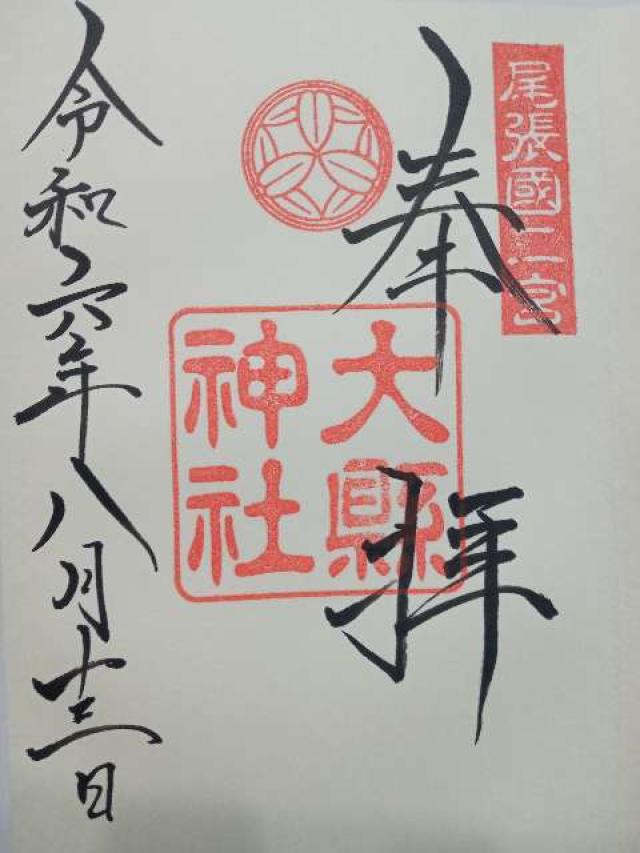 尾張國二宮
奉拝
大縣
神社
令和六年八月十三日